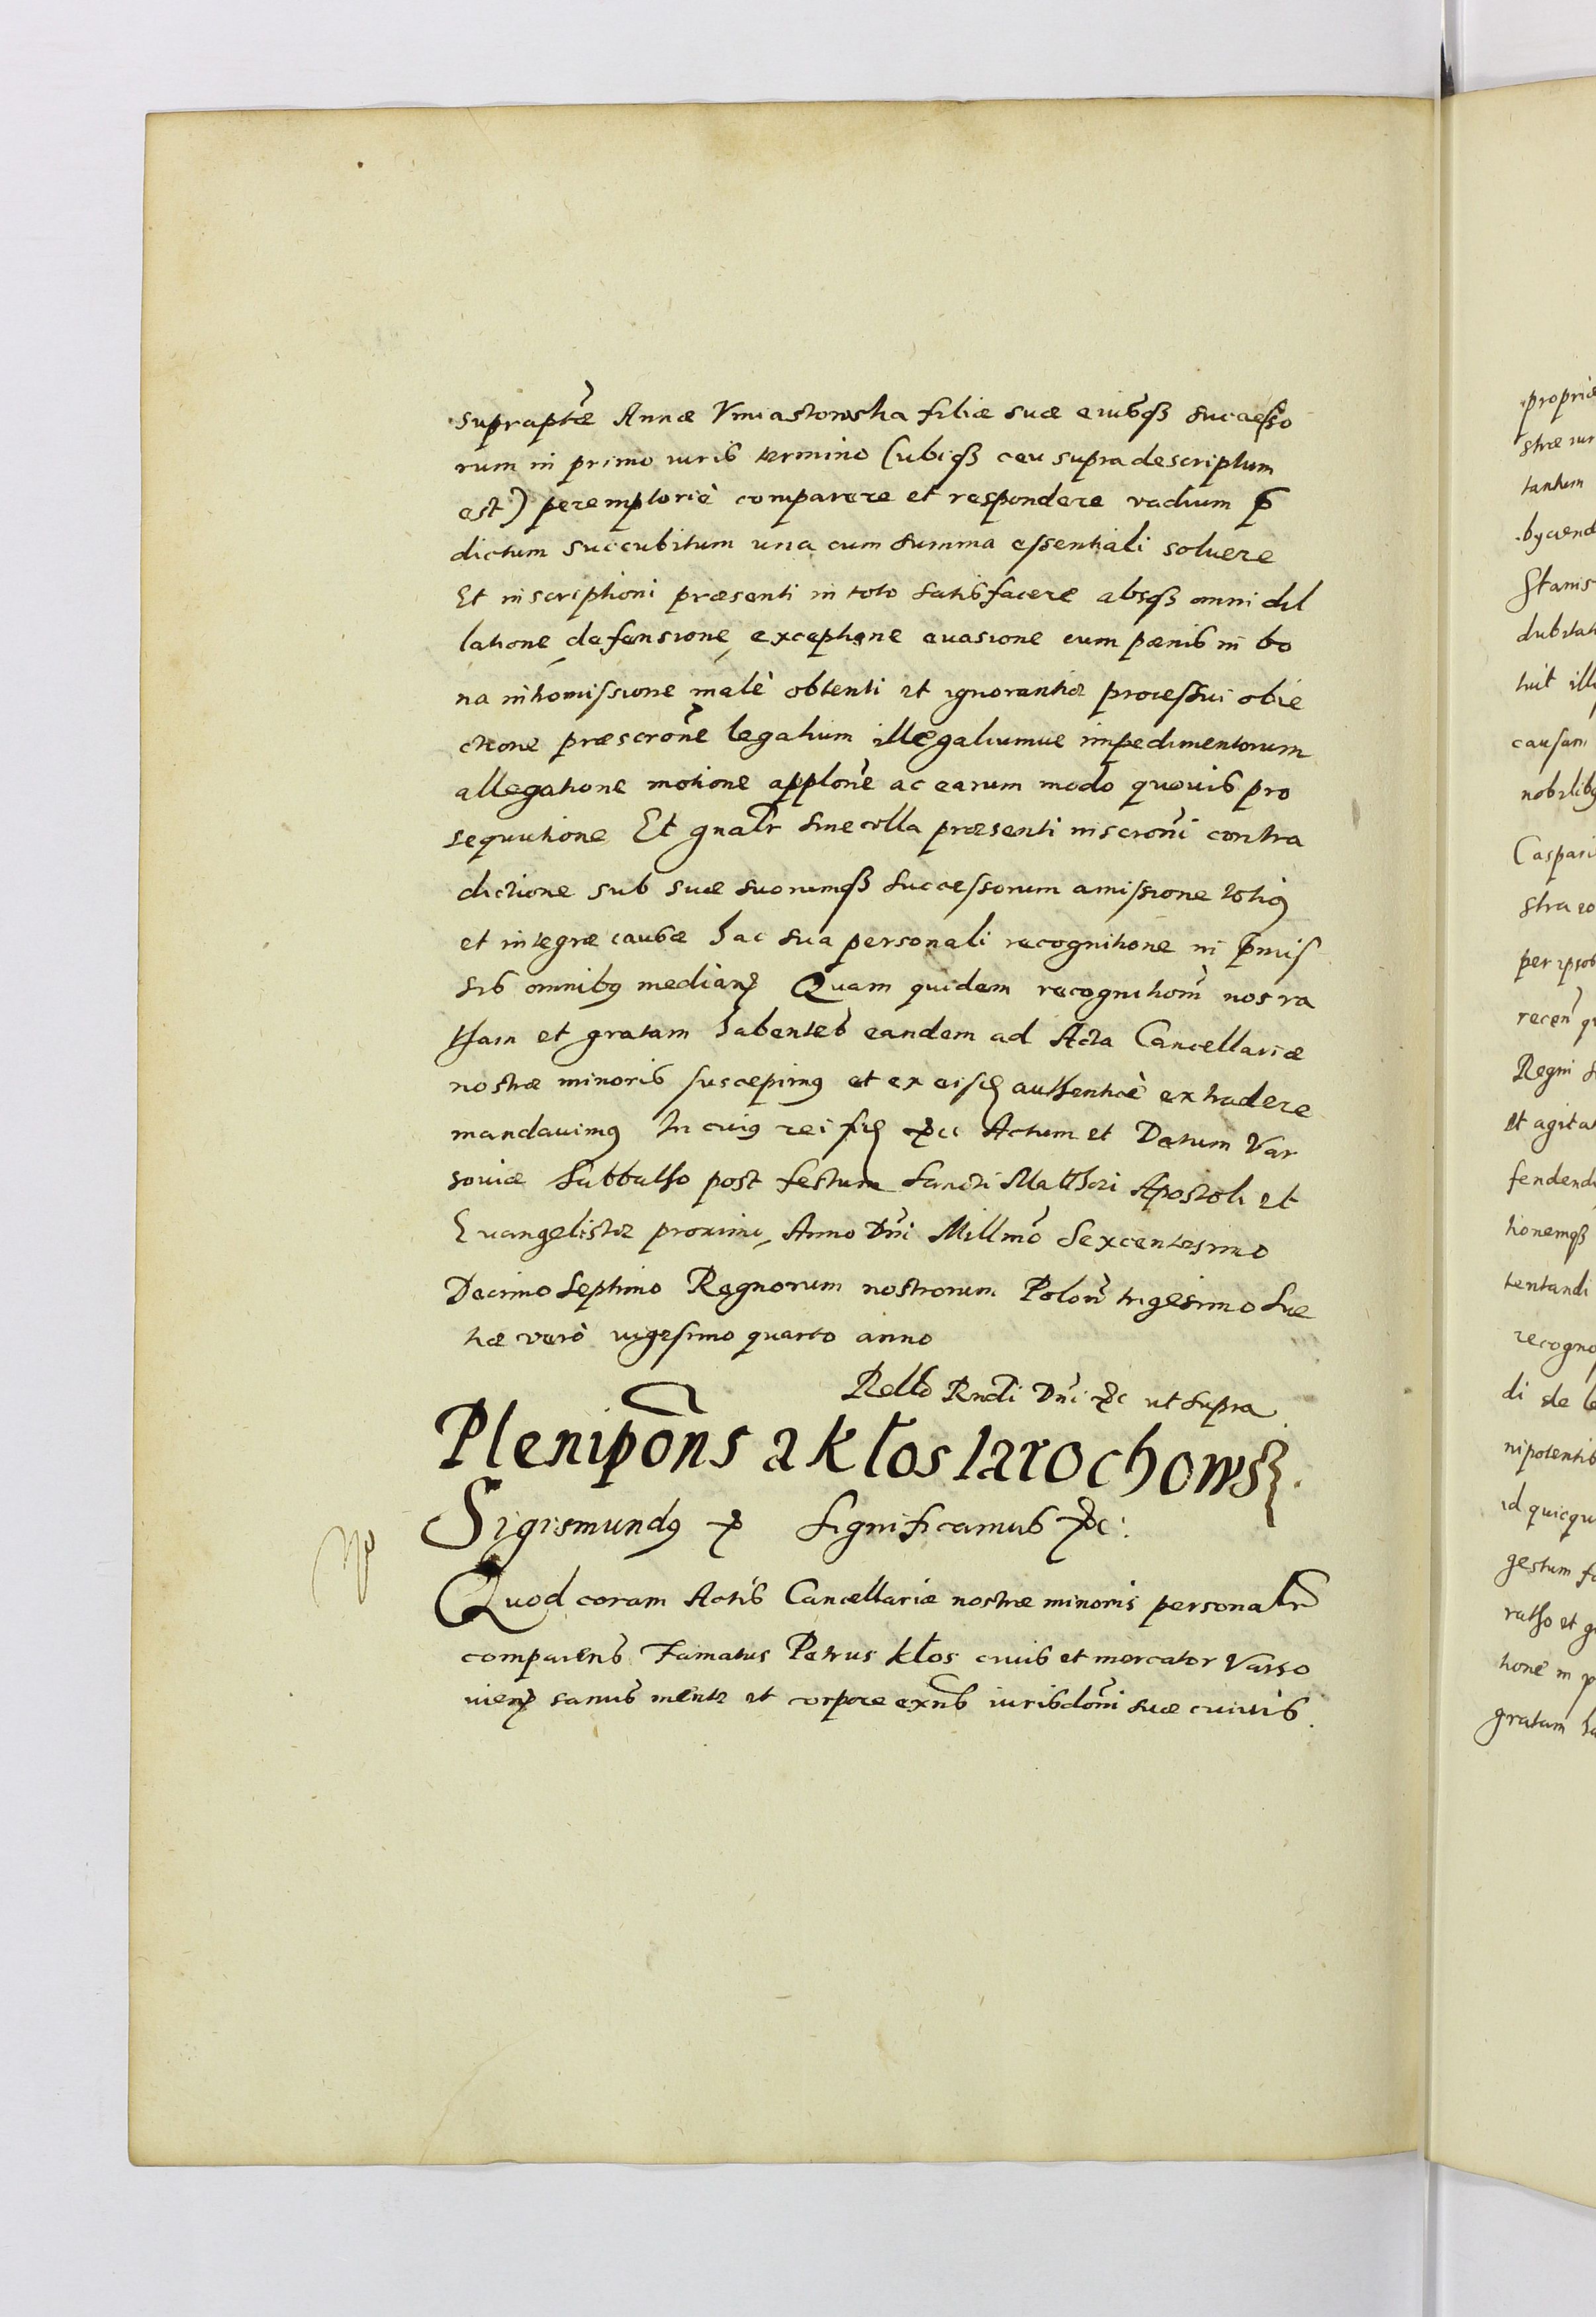 supraptae Annae Vmiastowska filiae suae eiusq₃ successo
rum in primo iuris termino (ubiq₃ ceu supra descriptum
est) peremptoriè comparere et respondere vadium p̄
dictum succubitum una cum summa essentiali soluere
Et inscriptioni praesenti in toto satisfacere absq₃ omni dil
latione, defensione, exceptione euasione cum paenis in bo
na intromissione malè obtenti et ignorantiae processui obie
ctione praescrone legalium illegaliumue impedimentorum
allegatione motione applone ac earum modo quouis pro
sequutione Et gnalr sine ulla praesenti inscroni contra
dictione sub suae suorumq₃ successorum amissione totiꝰ
et integrae causae hac sua personali recognitione in p̄mis
sis omnibꝰ median̄ Quam quidem recognitionem nos ra
tham et gratam habentes eandem ad Acta Cancellariae
nostrae minoris suscepimꝰ et ex eisd authenticè extradere
mandauimꝰ In cuiꝰ rei fid etc Actum et Datum Var
souiae Sabbatho post festum Sancti Matthaei Apostoli et
Euangelistae proximi, Anno Dni Millmo Sexcentesimo
Decimo Septimo Regnorum nostrorum Polon trigesimo Sue
tiae verò vigesimo quarto anno
Rello Rndi Dni etc ut supra
Plenipōns a kłos Iarochows
Sigismundꝰ etc Significamus etc:
Quod coram Actis Cancellariae nostrae minoris personalr
comparens Famatus Petrus Kłos ciuis et mercator Varso
uien̄ sanus mente et corpore exns iurisdoni suae ciuitis
propriae
strae iur
tantum
byciend
Stanis
dubitat
tuit ill
causam
nobilibꝰ
Caspari
stra
per ipsos
recen
Regni
et agita
fendend
tionemq₃
tentandi
recogno
di de le
nipotentis
id quicqu
gestum
ratho et
tione in
gratam